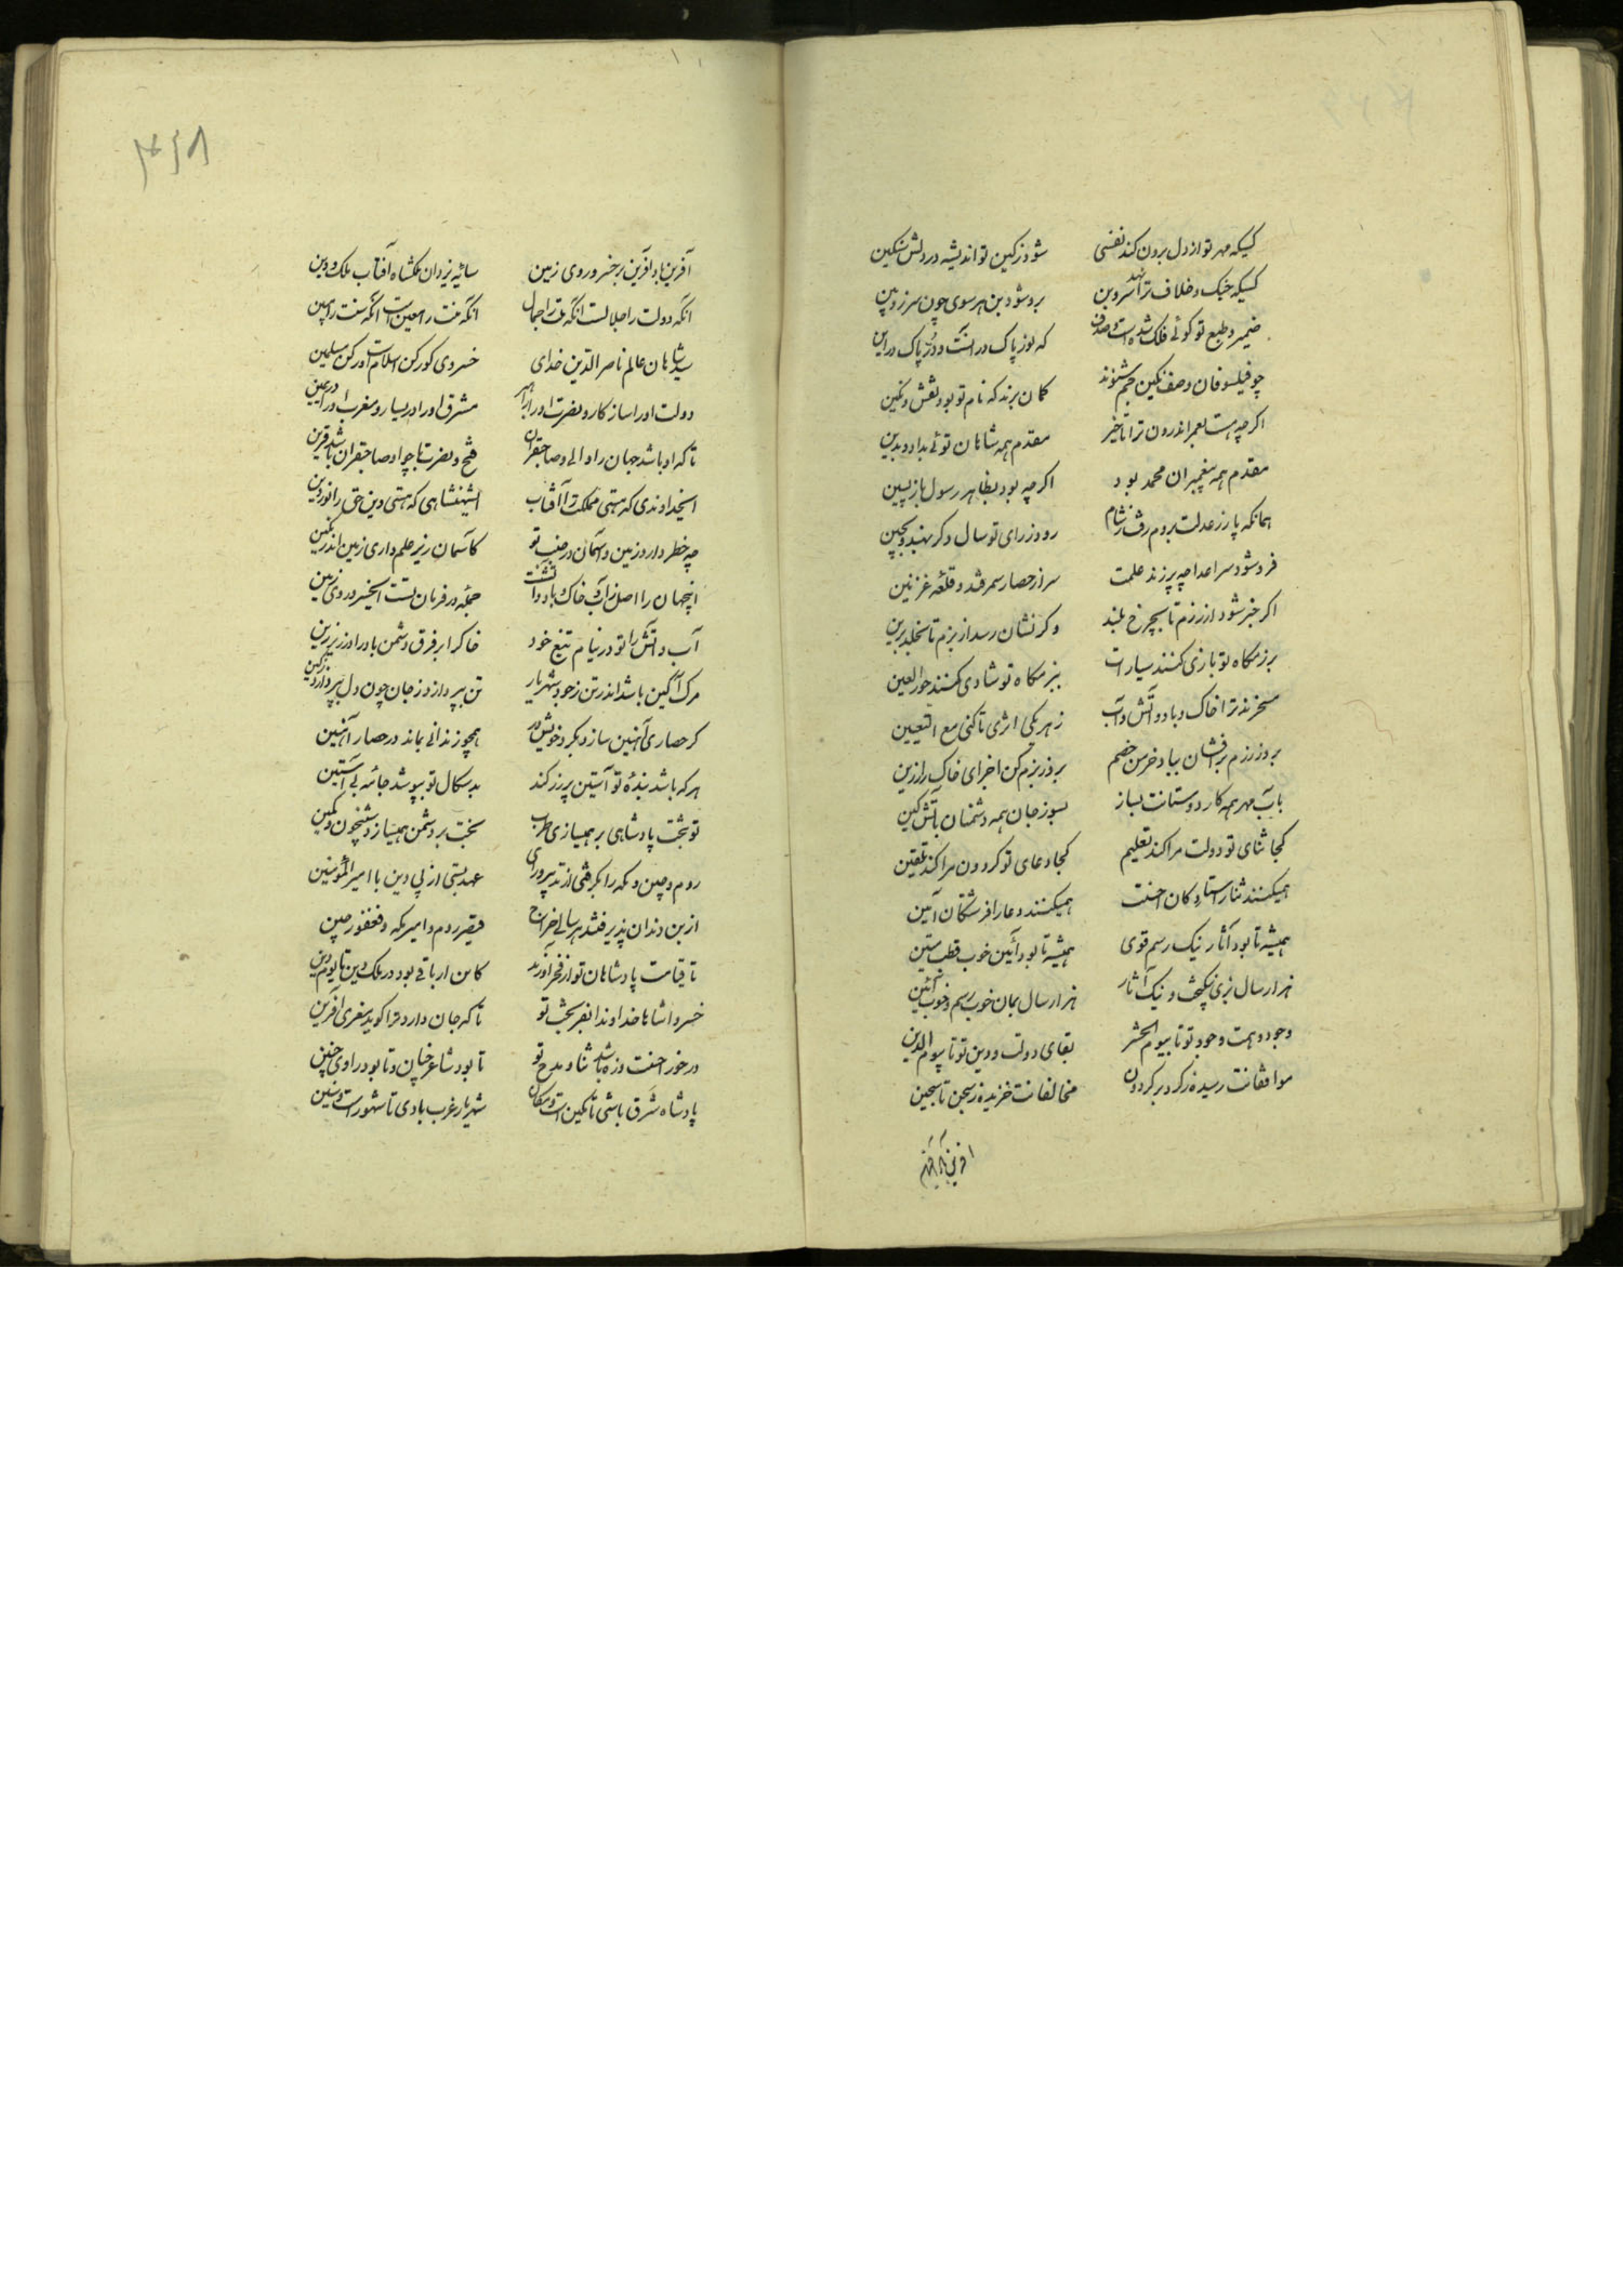 کسیکه مهر تو از دل برون کند نفسی شود ز کین تو اندیشه در دلش سکین
کسیکه جنگ و خلاف ترا نهد سر و بن برو شود بن هر موی چون سر زوبین
ضمیر و طبع تو کوئی فلک شدست و صدف که نور پاک در آنست و درّ پاک در این
چو فیلسوفان وصف نکین جم شنوند کمان برند که نام تو بود نقش نکین
اکرچه هست بعمر اندرون ترا تاخیر مقدم همه شاهان توئی بداد و بدین
مقدم همه پیغمبران محمد بود اکرچه بود بظاهر رسول بازپسین
همانکه پار ز عدلت بروم رفت و بشام رود ز رای تو سال دکر بهند و بچین
فرو شود سر اعدا چو برزند علمت سر از حصار سمرقند و قلعه غزنین
اکر خبر شود از رزم تا بچرخ بلند وکر نشان رسد از بزم تا بخلد برین
برزمکاه تو بازی کنند سیارات ببزمکاه تو شادی کنند حورالعین
مسخرند ترا خاک و باد و آتش و آب ز هر یکی اثری تا کنی مع التعیین
بروز رزم برافشان بباد خرمن خصم بروز بزم کن اجزای خاک را زرین
بآب مهر همه کار دوستانت بساز بسوز جان همه دشمنان بآتش کین
کجا ثنای تو دولت مرا کند تعلیم کجا دعای تو کردون مرا کند تلقین
همیکنند ثنا را ستارکان احسنت همیکنند دعا را فرشتکان آمین
همیشه تا بود آثار نیک رسم قوی همیشه تا بود آئین خوب قطب متین
هزار سال بزی نیکبخت و نیک آثار هزار سال بمان خوب رسم و خوب آئین
وجود و همت وجود تو تا بیوم الحشر بقای دولت و دین تو تا بیوم الدین
موافقانت رسیده ز کرد بر کردون مخالفانت خزیده ز سجن تا سجین
آفرین باد آفرین
۴۶۸
آفرین باد آفرین بر خسرو روی زمین سایه یزدان ملکشاه آفتاب ملک و دین
آنکه دولت را جلالست آنکه ملت را جمال آنکه امت را معین است آنکه سنت را یمین
سید شاهان عالم ناصر الدین خدای خسروی کو رکن اسلام است و رکن مسلمین
دولت او را سازکار و نصرت او را راهبر مشرق او را در یسار و مغرب او را در یمین
تا که او باشد جهان را والی و صاحبقران فتح و نصرت با چو او صاحبقران باشد قرین
ایخداوندی که هستی مملکت را آفتاب ای شهنشاهی که هستی دین حق را نور دین
چه خطر دارد زمین و آسمان در جنب تو کآسمان زیر علم داری زمین اندر نکین
اینجهان را اصل از آب و خاک و باد و آتشست جمله در فرمان تست ایخسرو روی زمین
آب و آتش را تو در نیام تیغ خود خاک را بر فرق دشمن باد را در زیر زین
مرک آکین باشد اندر تن ز جود شهریار تن بپردازد ز جان چون دل بپردازد ز کین
کر حصاری آهنین سازد بکرد خویش در همچو زندانی بماند در حصار آهنین
هر که باشد بنده تو آستین پر زر کند بدسکال تو بپوشد جامه بی آستین
تو بتخت پادشاهی بر همیسازی طرب بخت بر دشمن همیسازد شبیخون و کمین
روم و چین و مکه را بکرفتی از تدبیر و رای عهد بستی از پی دین با امیرالمؤمنین
از بن دندان پذیرفتند هر سالی خراج قیصر روم و امیر مکه و فغفور چین
تا قیامت پادشاهان تو از فخر آورند کاین اثر باقی بود در ملک و دین تا یوم دین
خسروا شاها خداوندا بفر بخت تو تا که جان دارد ترا کوید معزی آفرین
در خور احسنت و زه باشد ثنا و مدح تو تا بود شاعر چنان و تا بود راوی چنین
پادشاه شرق باشی تا مکین است و مکان شهریار غرب بادی تا شهور است و سنین